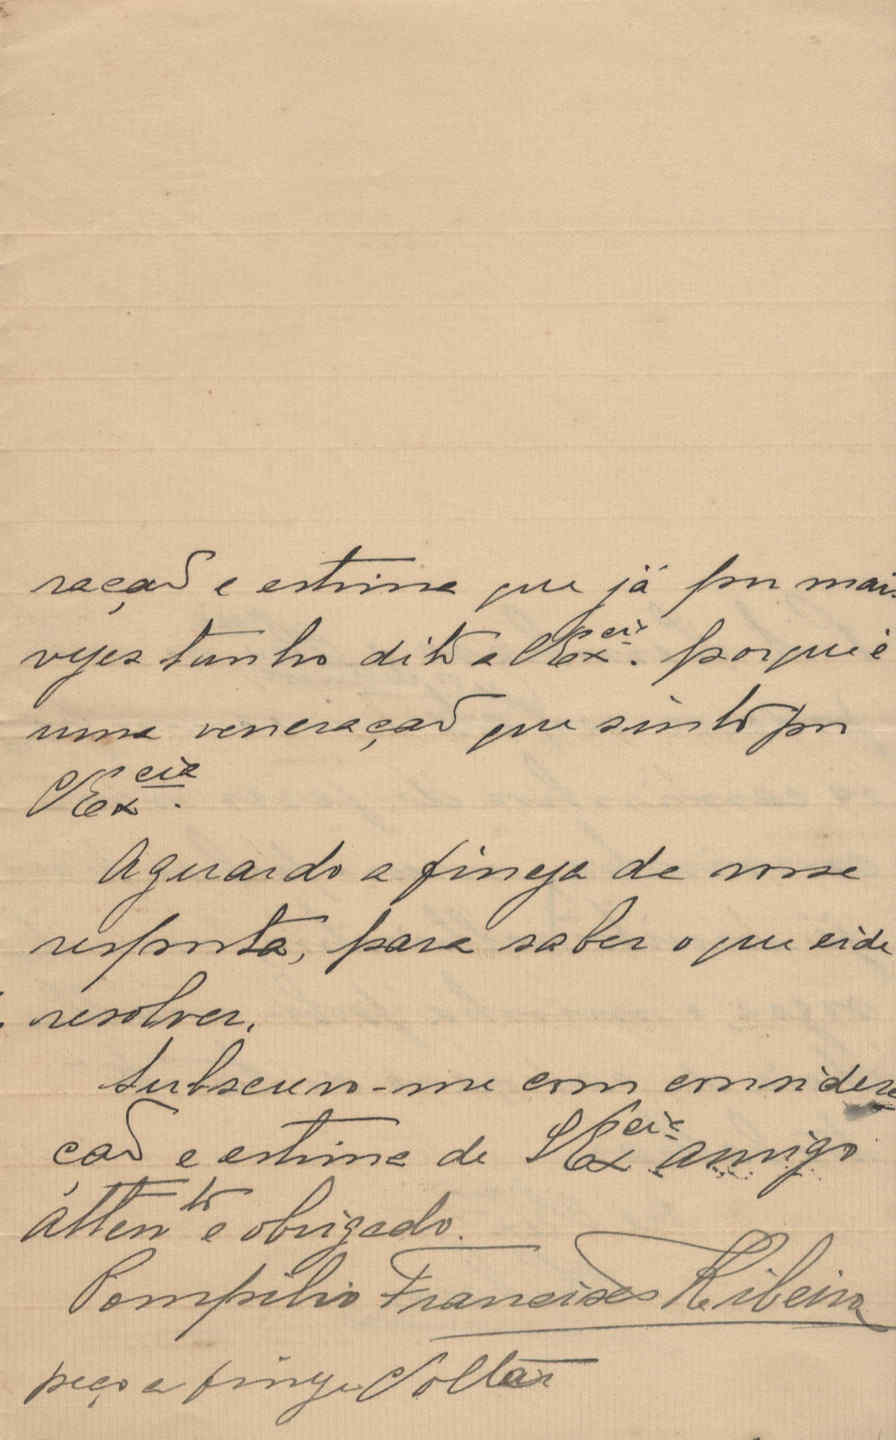 ração e estima que já por mais
vezes tenho dito a VEx.cia porque é
uma veneração que sinto por
VEx.cia
Aguardo a fineza de vossa
resposta, para saber o que eide
resolver.
Subscrevo-me com considera
ção e estima de VEx.cia amigo
Átten.to e obrigado.
Pompilio Francisco Ribeiro
peço a fineza Voltar